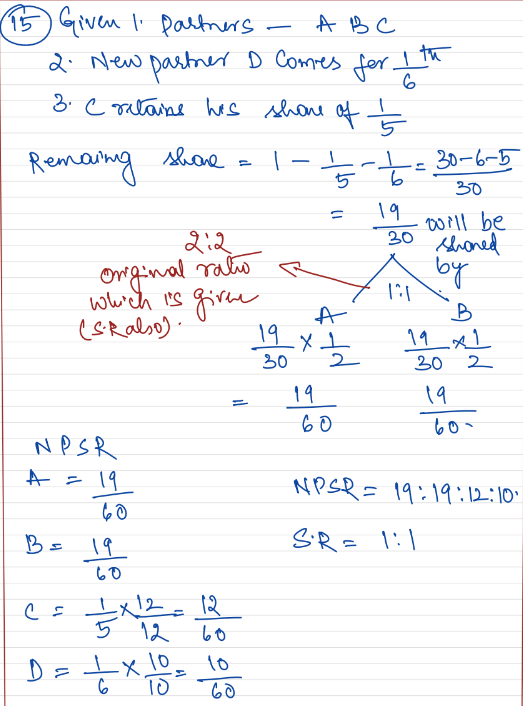 15 Given 1. Partners — A B C
2. New partner D Comes for 1/6 th
3. C retains his share of 1/5
Remaing share = 1 - 1/5 - 1/6 = 30-6-5/30
= 19/30 will be shared by
2:2 original ratio which is given (S.R also).
1:1
A B
19/30 × 1/2 19/30 × 1/2
= 19/60 19/60.
NPSR
A = 19/60
NPSR = 19:19:12:10.
B = 19/60
S.R = 1:1
C = 1/5 × 12/12 = 12/60
D = 1/6 × 10/10 = 10/60